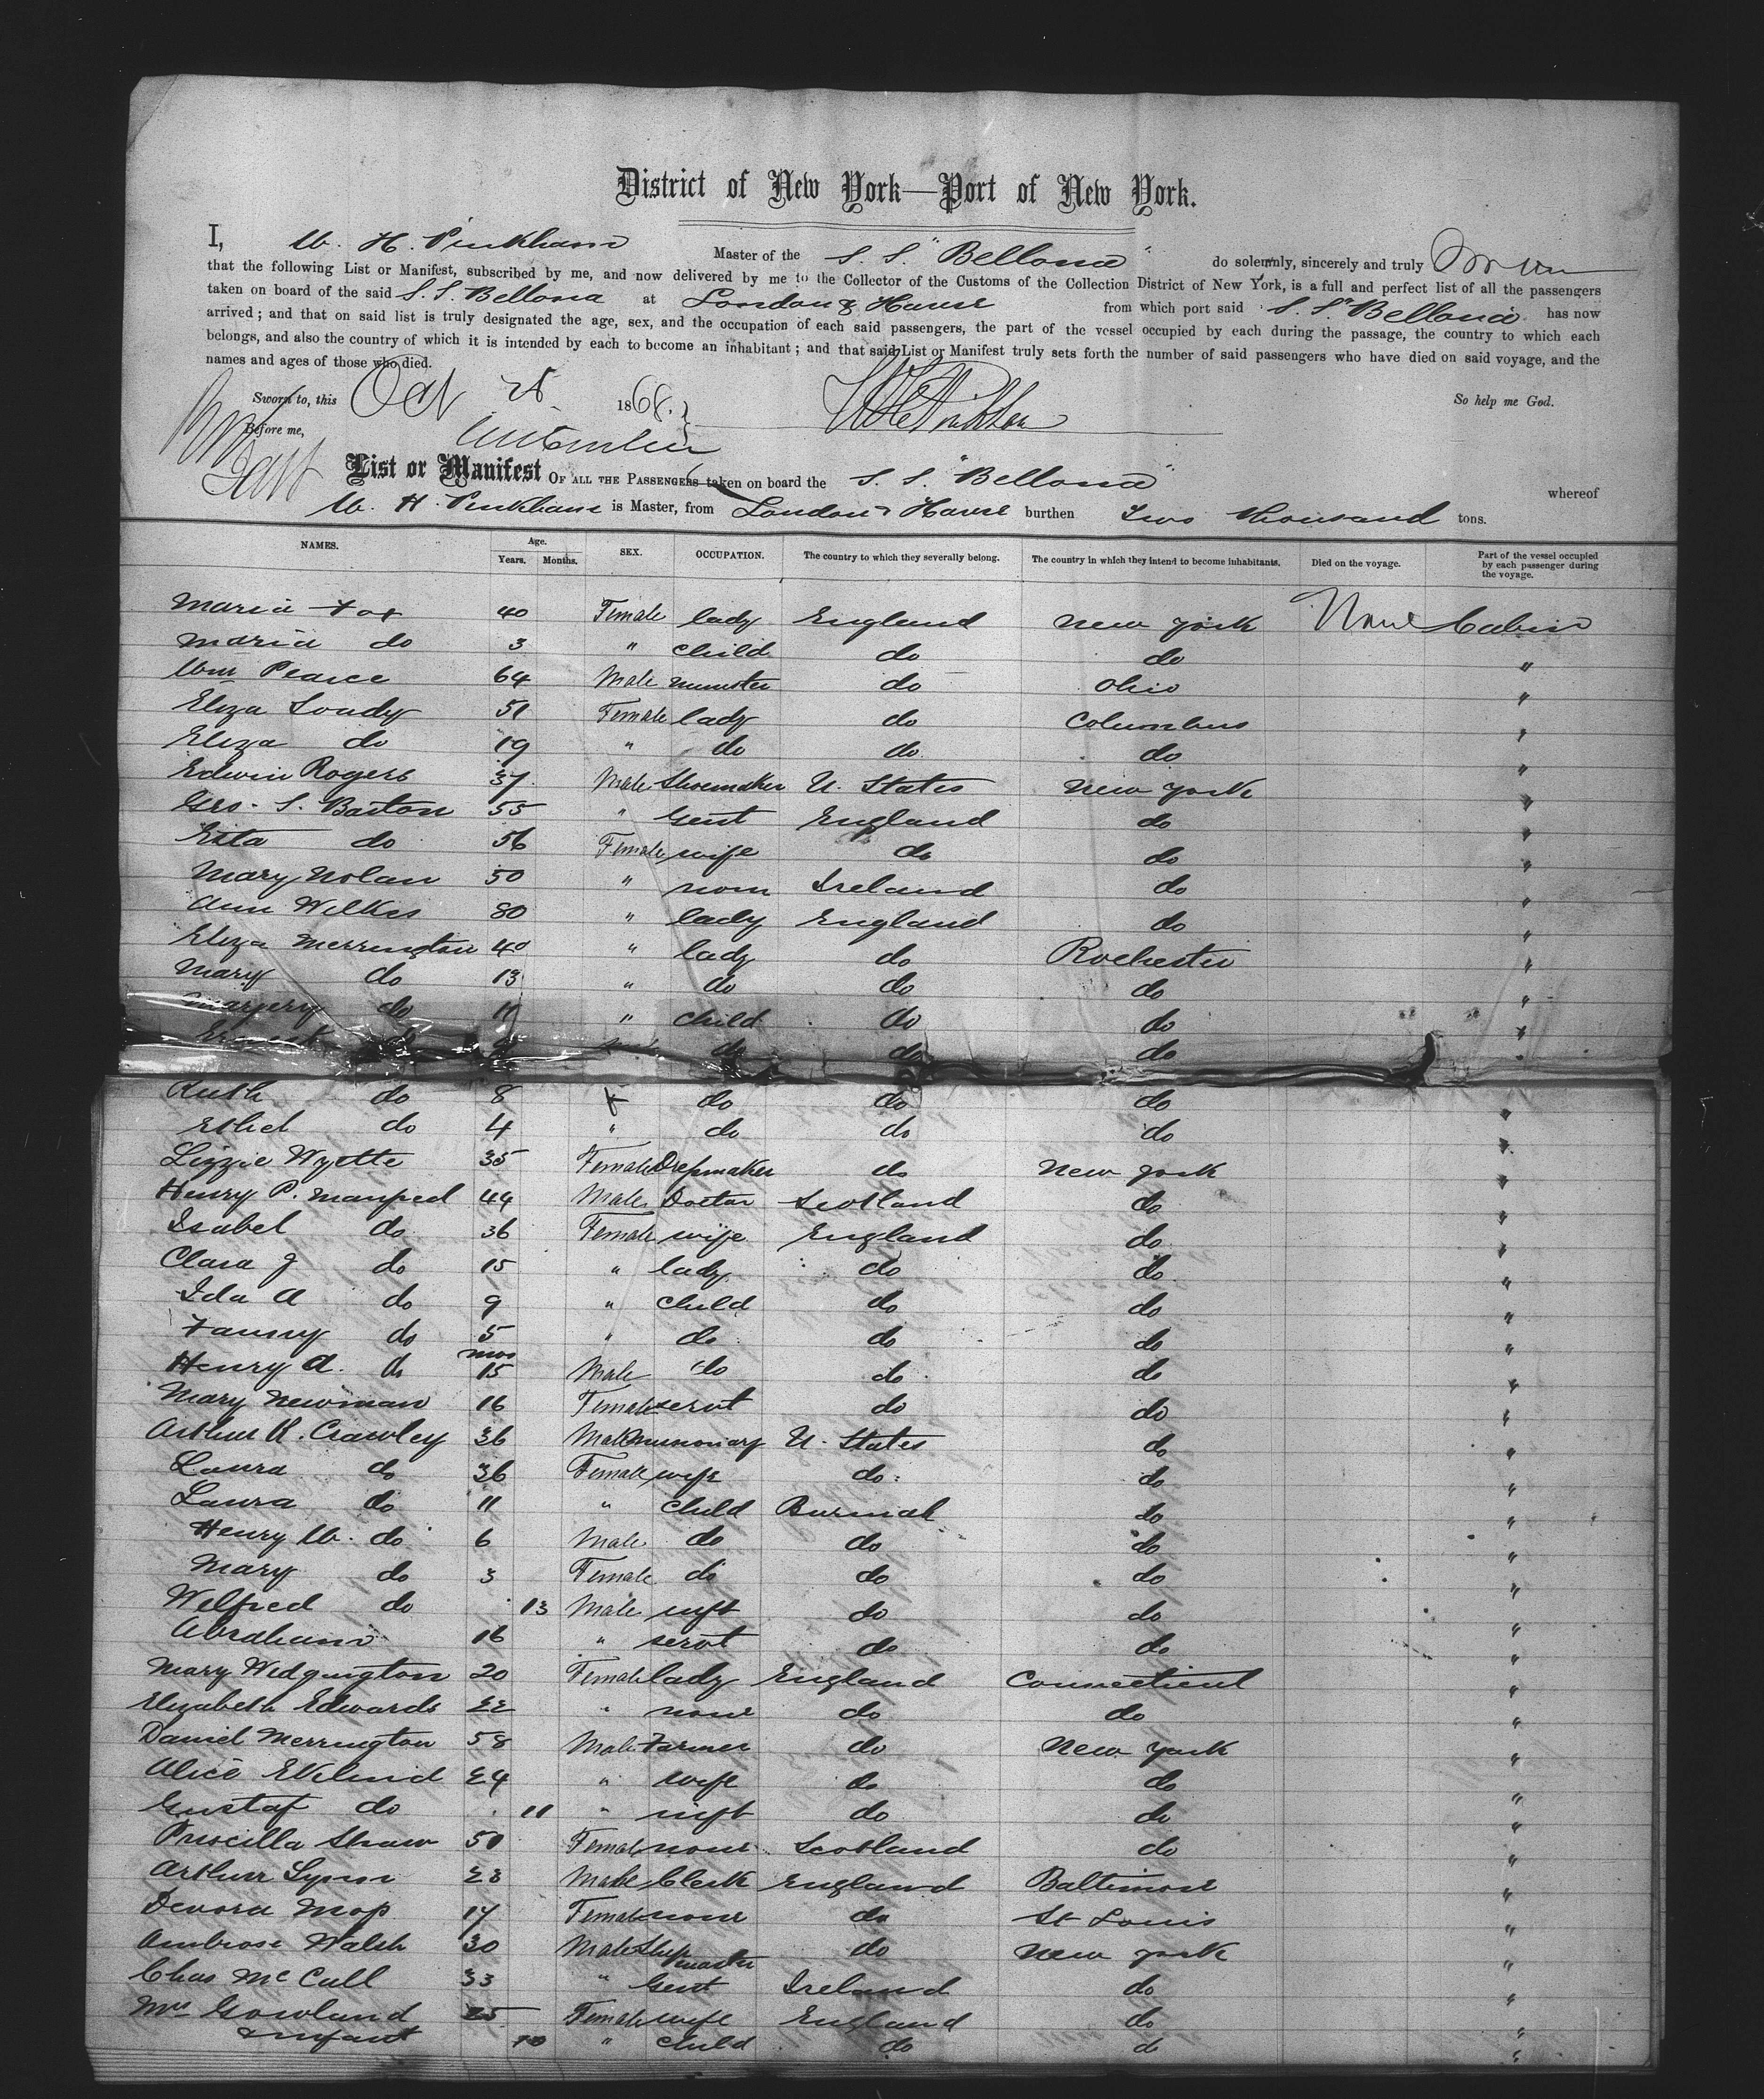 District of New York—Port of New York.
I, W. H. Pinkham Master of the S. S. "Bellona" do solemnly, sincerely and truly
that the following List or Manifest, subscribed by me, and now delivered by me to the Collector of the Customs of the Collection District of New York, is a full and perfect list of all the passengers
taken on board of the said S. S. Bellona at London & Havre from which port said S. S. "Bellona" has now
arrived; and that on said list is truly designated the age, sex, and the occupation of each said passengers, the part of the vessel occupied by each during the passage, the country to which each
belongs, and also the country of which it is intended by each to become an inhabitant; and that said List or Manifest truly sets forth the number of said passengers who have died on said voyage, and the
names and ages of those who died.
Sworn to, this Oct 1868. So help me God.
Before me,
List or Manifest OF ALL THE PASSENGERS taken on board the S. S. "Bellona" whereof
W. H. Pinkham is Master, from London & Havre burthen Two thousand tons.
NAMES. Age. Years. Months. SEX. OCCUPATION. The country to which they severally belong. The country in which they intend to become inhabitants. Died on the voyage. Part of the vessel occupied by each passenger during the voyage.
Maria Fox 40 Female lady England New York None Cabin
Maria do 3 " child do do "
Wm Pearce 64 Male minister do Ohio "
Eliza 51 Female lady do Columbus "
Eliza do 19 " do do do "
Edwin Rogers 37 Male Shoemaker U. States New York "
Geo. S. Barton 55 " Gent England do "
Etta do 56 Female wife do do "
Mary Nolan 50 " none Ireland do "
Ann Wilkes 80 " lady England do "
Eliza Merrington 40 " lady do Rochester "
Mary do 13 " do do do "
Margery do 11 " child do do "
Ernest do do do do "
Ruth do 8 f do do do "
Ethel do 4 " do do do "
Lizzie Wyette 35 Female Dressmaker do New York "
Henry P. Manfred 44 Male Doctor Scotland do "
Isabel do 36 Female wife England do "
Clara J do 15 " lady do do "
Ida A do 9 " child do do "
Fanny do 5 " do do do "
Henry A. do mos 15 Male do do do "
Mary Newman 16 Female servt do do "
Arthur R. Crawley 36 Male missionary U. States do "
Laura do 36 Female wife do do "
Laura do 11 " child Burmah do "
Henry W. do 6 Male do do do "
Mary do 3 Female do do do "
Wilfred do 13 Male inft do do "
Abraham 16 " servt do do "
Mary Widgington 20 Female lady England Connecticut "
Elizabeth Edwards 22 " none do do "
Daniel Merrington 58 Male Farmer do New York "
Alice Eklund 24 " wife do do "
Gustaf do 11 " inft do do "
Priscilla Shaw 50 Female none Scotland do "
Arthur Lynn 23 Male Clerk England Baltimore "
Devora Moss 17 Female none do St Louis "
Ambrose Walsh 30 Male Ship master do New York "
Chas McCall 33 " Gent Ireland do "
Mrs Gowland 25 Female wife England do "
& infant 10 " child do d "